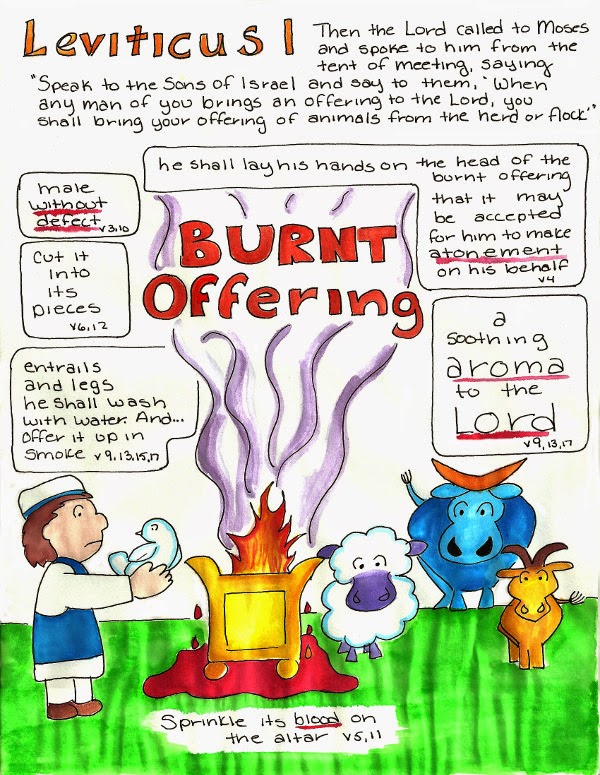 Leviticus 1
Then the Lord called to Moses
and spoke to him from the
tent of meeting, saying
"Speak to the Sons of Israel and say to them, 'When
any man of you brings an offering to the Lord, you
shall bring your offering of animals from the herd or flock.'"
he shall lay his hands on the head of the
burnt offering
that it may
be accepted
for him to make
atonement
on his behalf
v4
male
without
defect v3,10
cut it
into
its
pieces
v6,12
BURNT
Offering
a
soothing
aroma
to the
Lord
v9,13,17
entrails
and legs
he shall wash
with water. And...
offer it up in
smoke v9,13,15,17
Sprinkle its blood on
the altar v5,11